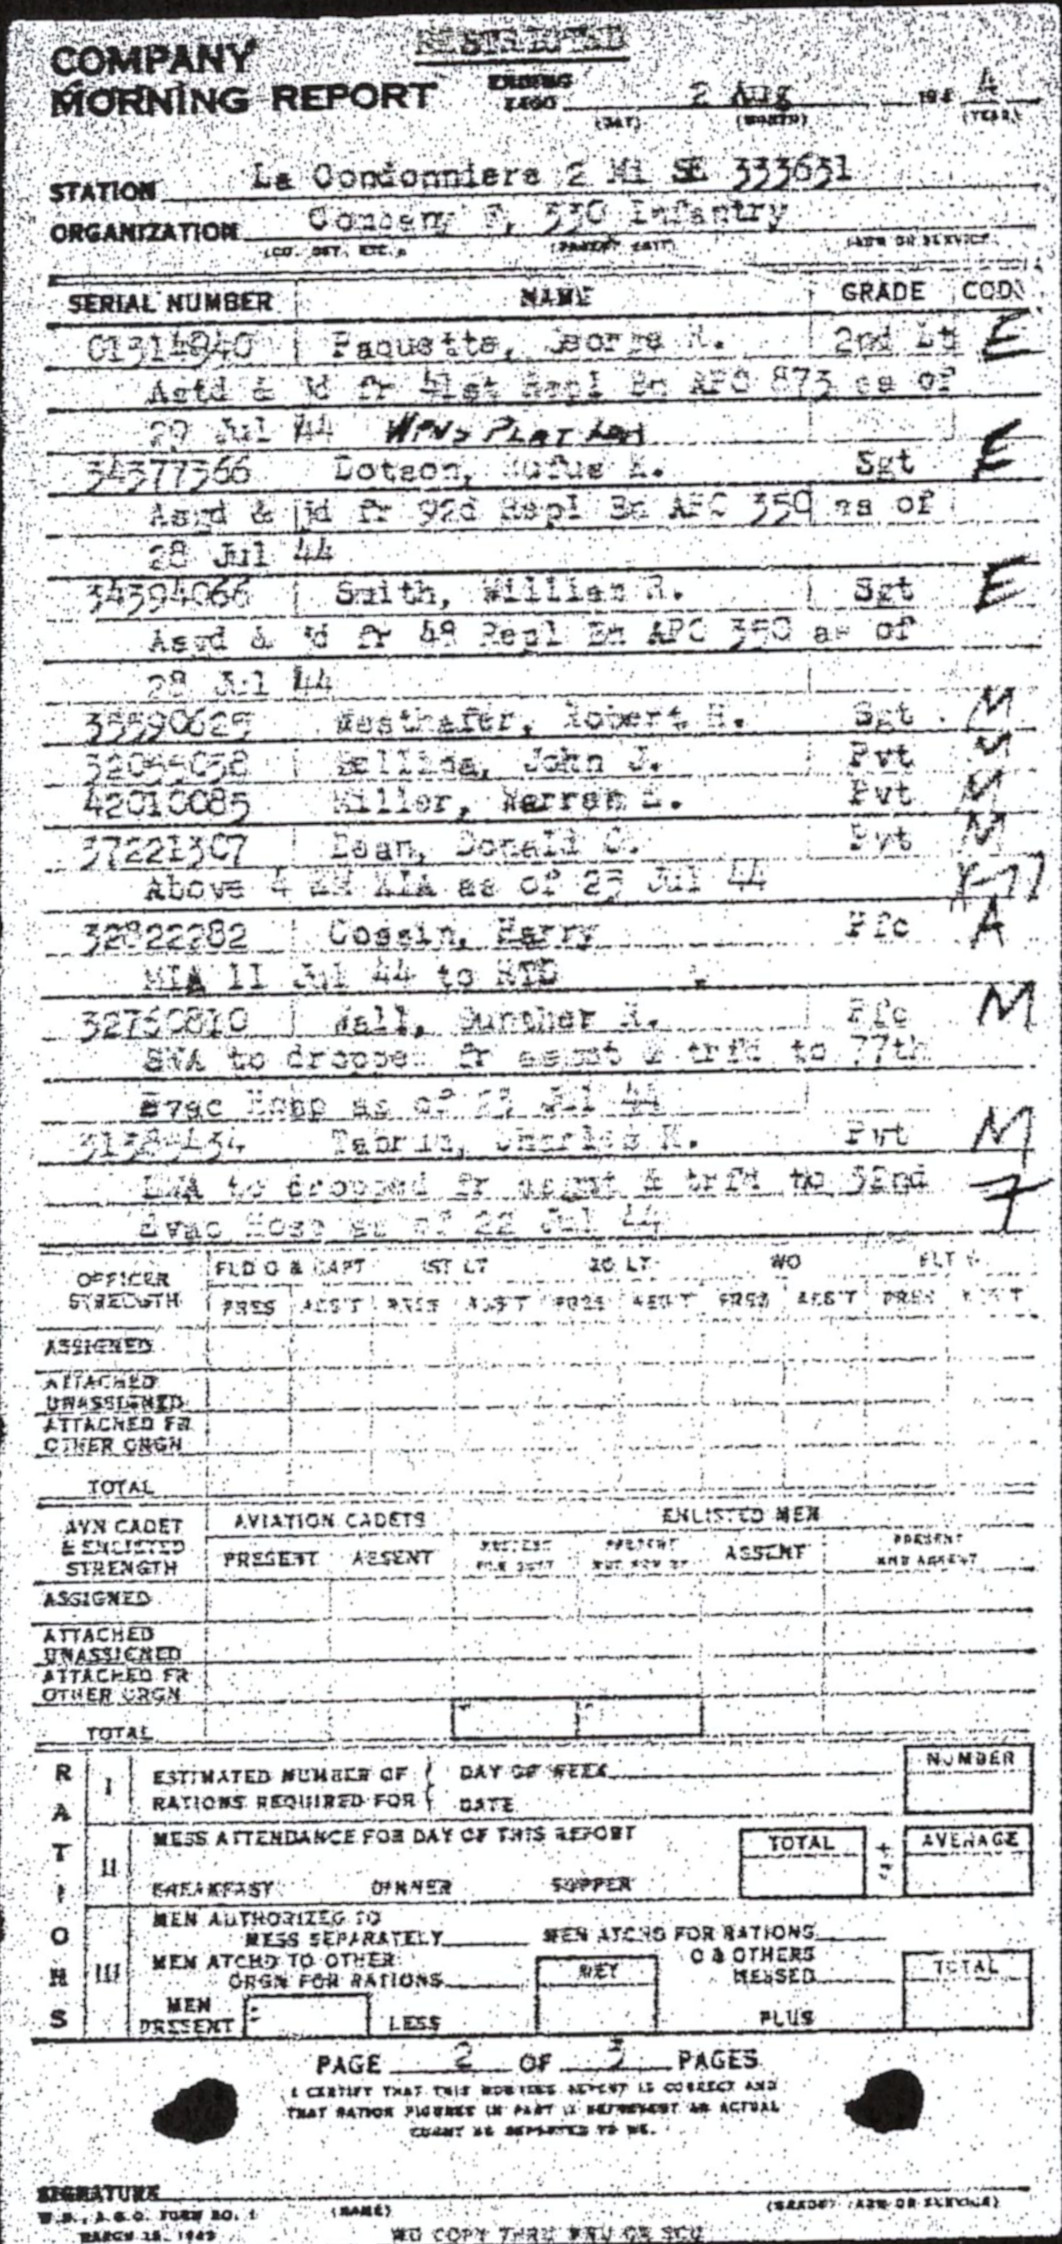 COMPANY
MORNING REPORT
RESTRICTED
ENDING
2400 2 Aug 194 4
(DAY) (MONTH) (YEAR)
STATION La Cordonniere 2 Mi SE 333631
ORGANIZATION Company F, 330 Infantry
(CO. DET. ETC.) (PARENT UNIT) (ARM OR SERVICE)
SERIAL NUMBER NAME GRADE CODE
01314940 Paquette, George R. 2nd Lt E
Astd & jd fr 41st Repl Bn APO 873 as of
29 Jul 44 WPNS PLAT LDR
34377366 Dotson, Rufus K. Sgt E
Asgd & jd fr 92d Repl Bn APO 350 as of
28 Jul 44
34394066 Smith, William R. Sgt E
Asgd & jd fr 48 Repl Bn APO 350 as of
28 Jul 44
35590625 Westhafer, Robert H. Sgt M
John J. Pvt M
42010085 Miller, Warren E. Pvt M
37221307 Dean, Donald C. Pvt M
Above 4 EM MIA as of 23 Jul 44
32822282 Cossin, Harry Pfc A
MIA 11 Jul 44 to RTD
32750810 Wall, Gunther Pfc M
to dropped fr asgmt & trfd to 77th
Evac Hosp as of Jul 44
Charles K. Pvt M
to dropped fr asgmt & trfd to 32nd 7
Evac Hosp as of 22 Jul 44
OFFICER STRENGTH FLD O & CAPT 1ST LT 2D LT WO FLT O
PRES ABS'T PRES ABS'T PRES ABS'T PRES ABS'T PRES ABS'T
ASSIGNED
ATTACHED
UNASSIGNED
ATTACHED FR
OTHER ORGN
TOTAL
AVN CADET & ENLISTED STRENGTH AVIATION CADETS ENLISTED MEN
PRESENT ABSENT PRESENT FOR DUTY PRESENT NOT FOR DY ABSENT PRESENT AND ABSENT
ASSIGNED
ATTACHED
UNASSIGNED
ATTACHED FR
OTHER ORGN
TOTAL
RATIONS
I ESTIMATED NUMBER OF DAY OF WEEK NUMBER
RATIONS REQUIRED FOR DATE
II MESS ATTENDANCE FOR DAY OF THIS REPORT TOTAL ÷ 3 AVERAGE
BREAKFAST DINNER SUPPER
III MEN AUTHORIZED TO
MESS SEPARATELY MEN ATCHD FOR RATIONS
MEN ATCHD TO OTHER O & OTHERS
ORGN FOR RATIONS NET MESSED TOTAL
MEN
PRESENT LESS PLUS
PAGE 2 OF 3 PAGES
I CERTIFY THAT THIS MORNING REPORT IS CORRECT AND
THAT RATION FIGURES IN PART II REPRESENT AN ACTUAL
COUNT AS REPORTED TO ME.
SIGNATURE
W.D., A.G.O. FORM NO. 1 (NAME) (GRADE) (ARM OR SERVICE)
MARCH 15, 1943 WD COPY THRU MRU OR SCU